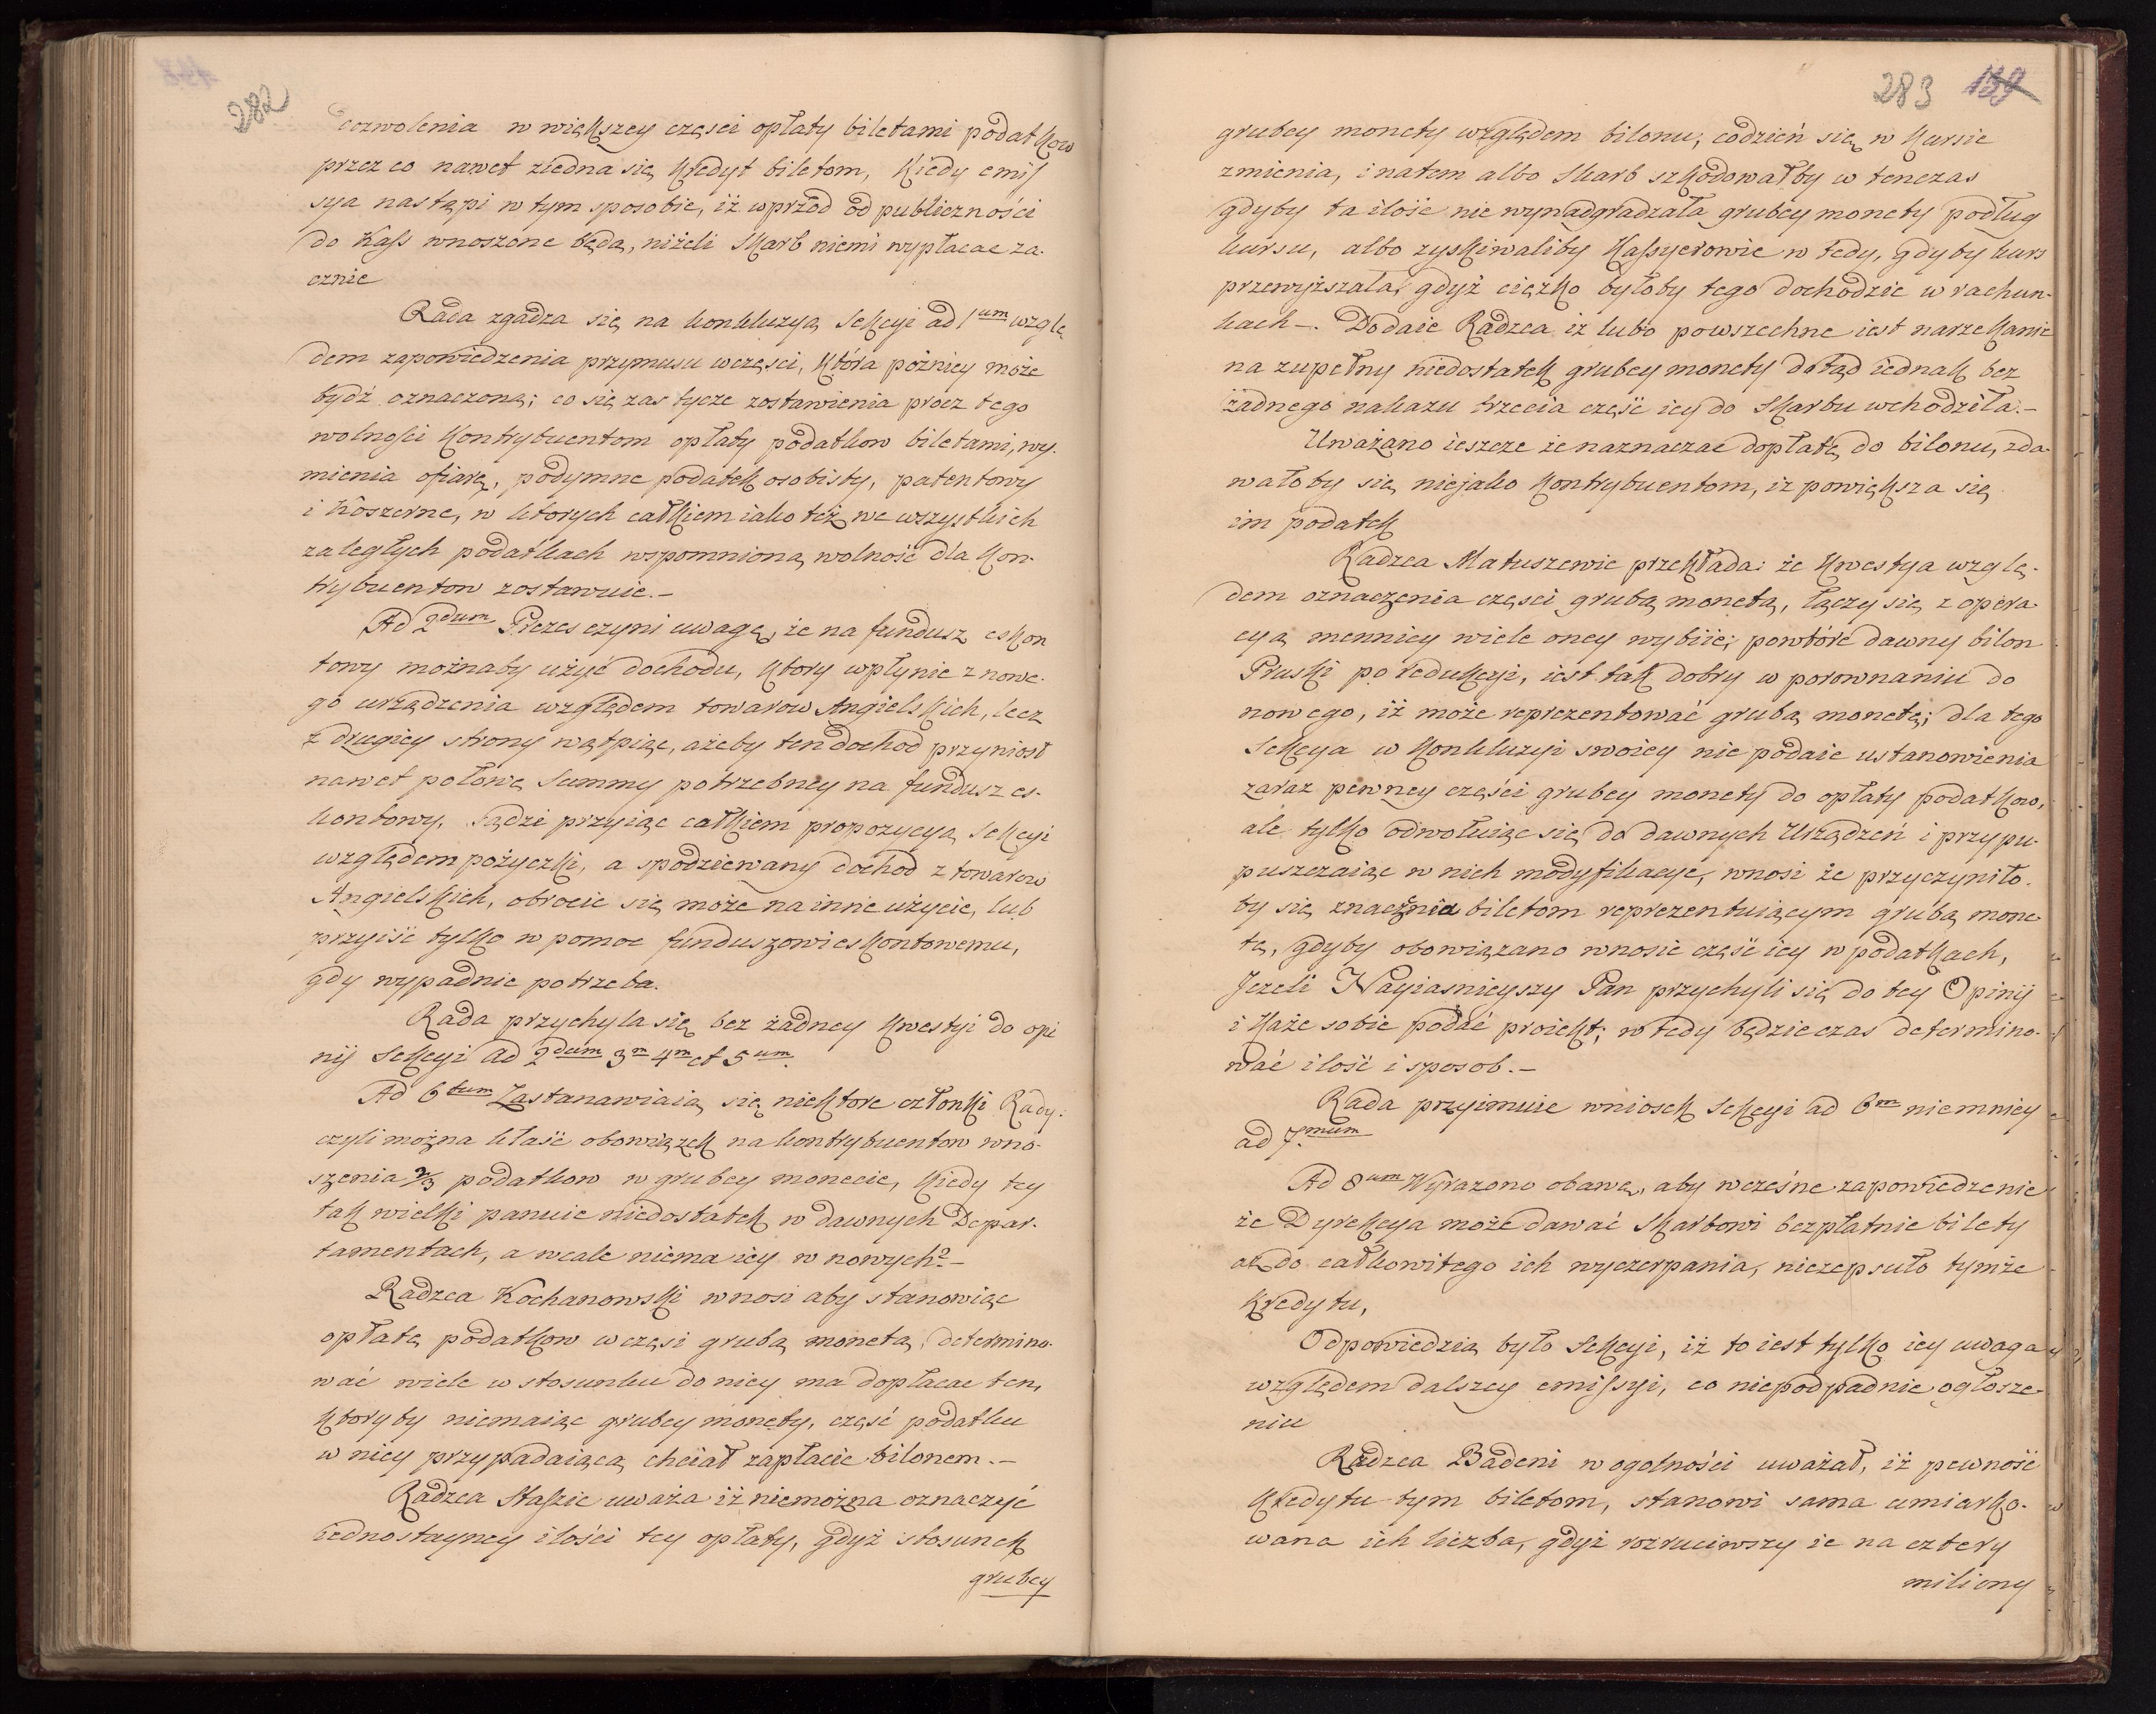 282
dozwolenia w większey częsci opłaty biletami podatkow
przez co nawet ziedna się kredyt biletom, kiedy emis
sya nastąpi w tym sposobie, iż wprzod od publiczności
do Kass wnoszone będą, niżeli Skarb niemi wypłacac za-
cznie
Rada zgadza się na konkluzyą Sekcyi ad 1um wzglę
dem zapowiedzenia przymusu wczęsci, która poźniey może
bydź oznaczoną; co się zas tycze zostawienia procz tego
wolności kontrybuentom opłaty podatkow biletami, wy-
mienia ofiarę, podymne podatek osobisty, patentowy
i koszerne, w ktorych całkiem iako też we wszystkich
zaległych podatkach wspomnioną wolność dla kon-
trybuentow zostawuie.-
Ad 2dum Prezes czyni uwagę, że na fundusz eskon
towy możnaby użyć dochodu, ktory wpłynie z nowe-
go urządzenia względem towarow Angielskich, lecz
z drugiey strony wątpiąc, ażeby ten dochod przyniosł
nawet połowę Summy potrzebney na fundusz es-
kontowy, sądzi przyiąc całkiem propozycyą Sekcyi
względem pożyczki, a spodziewany dochod z towarow
Angielskich, obrocic się może na inne użycie, lub
przyiść tylko w pomoc funduszowi eskontowemu,
gdy wypadnie potrzeba.
Rada przychyla się bez żadney kwestyi do opi
nij Sekcyi ad 2dum 3m 4m et 5um.
Ad 6tum Zastanawiaią się niektore członki Rady:
czyli można kłaść obowiązek na kontrybuentow wno-
szenia 2/3 podatkow w grubey monecie, kiedy tey
tak wielki panuie niedostatek w dawnych Depar-
tamentach, a wcale niema iey w nowych?-
Radzca Kochanowski wnosi aby stanowiąc
opłatę podatkow w częsi grubą monetą, determino-
wać wiele w stosunku do niey ma dopłacac ten,
ktoryby niemaiąc grubey monety, część podatku
w niey przypadaiącą chciał zapłacic bilonem.-
Radzca Staszic uważa iż niemożna oznaczyć
iednostayney ilości tey opłaty, gdyż stosunek
grubey
283 139
grubey monety względem bilonu, codzień się w kursie
zmienia, i natem albo Skarb szkodowałby w tenczas
gdyby ta ilość nie wynadgradzała grubey monety podług
kursu, albo zyskiwaliby Kassyerowie w tedy, gdyby kurs
przewyższała, gdyż ciężko byłoby tego dochodzic w rachun-
kach-. Dodaie Radzca iż lubo powszechne iest narzekanie
na zupełny niedostatek grubey monety dotąd iednak bez
żadnego nakazu trzecia część iey do Skarbu wchodziła.-
Uważano ieszcze że naznaczac dopłatę do bilonu, zda-
wałoby się niejako kontrybuentom, iż powiększa się
im podatek
Radzca Matuszewic przekłada: że kwestya wzglę-
dem oznaczenia częsci grubą monetą, łączy się z opera-
cyą mennicy wiele oney wybiie; powtóre dawny bilon
Pruski po redukcyi, iest tak dobry w porownaniu do
nowego, iż może reprezentować grubą monetę; dla tego
Sekcya w konkluzyi swoiey nie podaie ustanowienia
zaraz pewney części grubey monety do opłaty podatkow,
ale tylko odwołuiąc się do dawnych Urządzeń i przypu-
puszczaiąc w nich modyfikacye, wnosi że przyczyniło-
by się znacznie biletom reprezentuiącym grubą mone-
tę, gdyby obowiązano wnosic część iey w podatkach,
Jezeli Nayiasnieyszy Pan przychyli się do tey Opinij
i każe sobie podać proiekt; w tedy będzie czas determino-
wać ilość i sposob.-
Rada przyimuie wniosek Sekcyi ad 6m niemniey
ad 7.mum
Ad 8um Wyrazono obawę, aby wcześne zapowiedzenie
że Dyrekcya może dawać Skarbowi bezpłatnie bilety
aż do całkowitego ich wyczerpania, niezepsuło tymże
kredytu,
Odpowiedzią było Sekcyi, iż to iest tylko iey uwaga
względem dalszey emissyi, co niepodpadnie ogłosze-
niu
Radzca Badeni w ogolności uważał, iż pewność
kredytu tym biletom, stanowi sama umiarko-
wana ich liczba, gdyż rozruciwszy ie na cztery
miliony